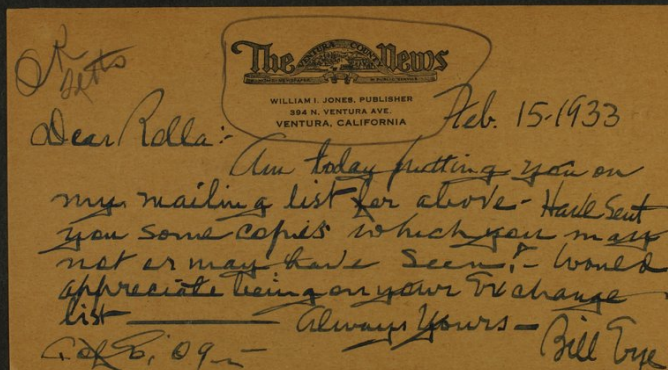 OK
The VENTURA COUNTY News
WILLIAM I. JONES, PUBLISHER
394 N. VENTURA AVE.
VENTURA, CALIFORNIA
Feb. 15-1933
Dear Rolla:-
Am today putting you on
my mailing list for above - Have Sent
you some copies which you may
not or may have seen! - Would
appreciate being on your Exchange
list Always Yours -
Bill